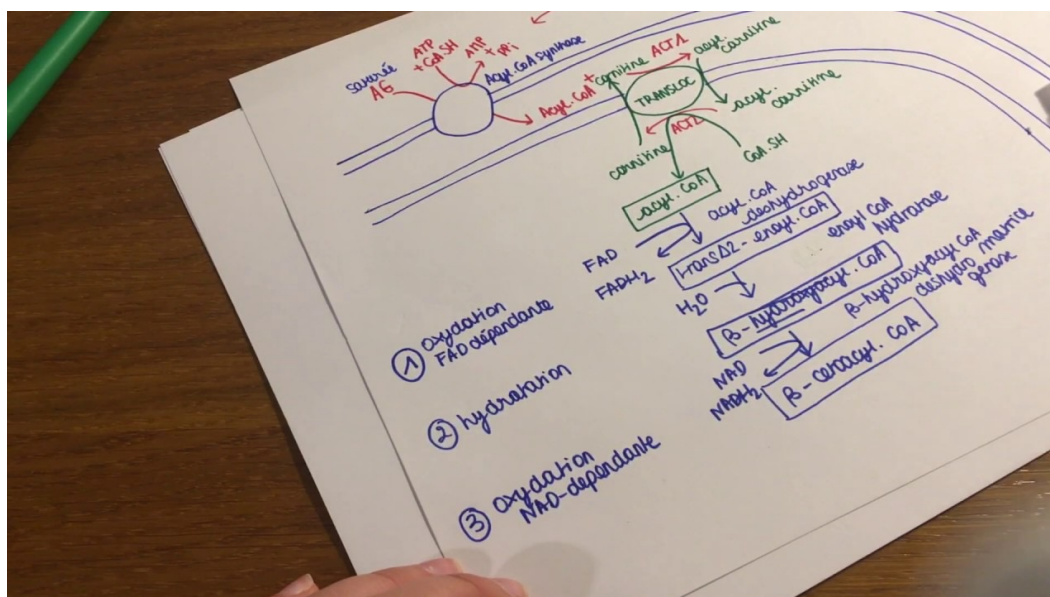 saturée
AG
ATP
+ CoASH
AMP
+ PPi
Acyl.CoA synthase
Acyl.CoA +
carnitine
ACT1
acyl.
carnitine
TRANSLOC
acyl.
carnitine
ACT2
carnitine
CoA.SH
acyl.CoA
acyl.CoA
deshydrogenase
FAD
FADH2
trans Δ2 - enoyl.CoA
enoyl CoA
hydratase
H2O
β-hydroxyacyl.CoA
β-hydroxyacyl CoA
deshydro
genase
matrice
NAD
NADH2
β-cetoacyl.CoA
① oxydation
FAD dépendante
② hydratation
③ oxydation
NAD-dépendante